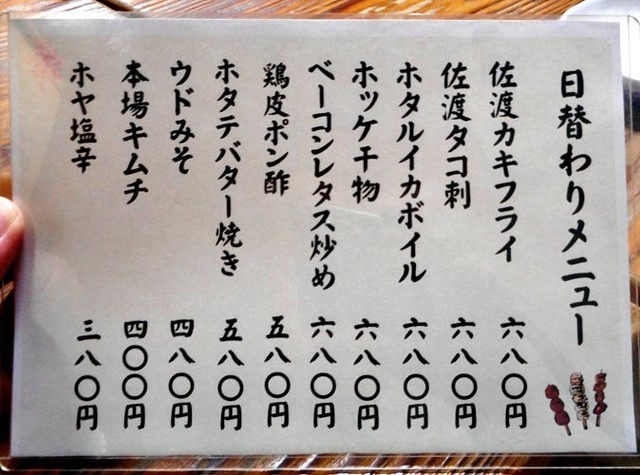 日替わりメニュー
佐渡カキフライ 六八〇円
佐渡タコ刺 六八〇円
ホタルイカボイル 六八〇円
ホッケ干物 六八〇円
ベーコンレタス炒め 六八〇円
鶏皮ポン酢 五八〇円
ホタテバター焼き 五八〇円
ウドみそ 四八〇円
本場キムチ 四〇〇円
ホヤ塩辛 三八〇円